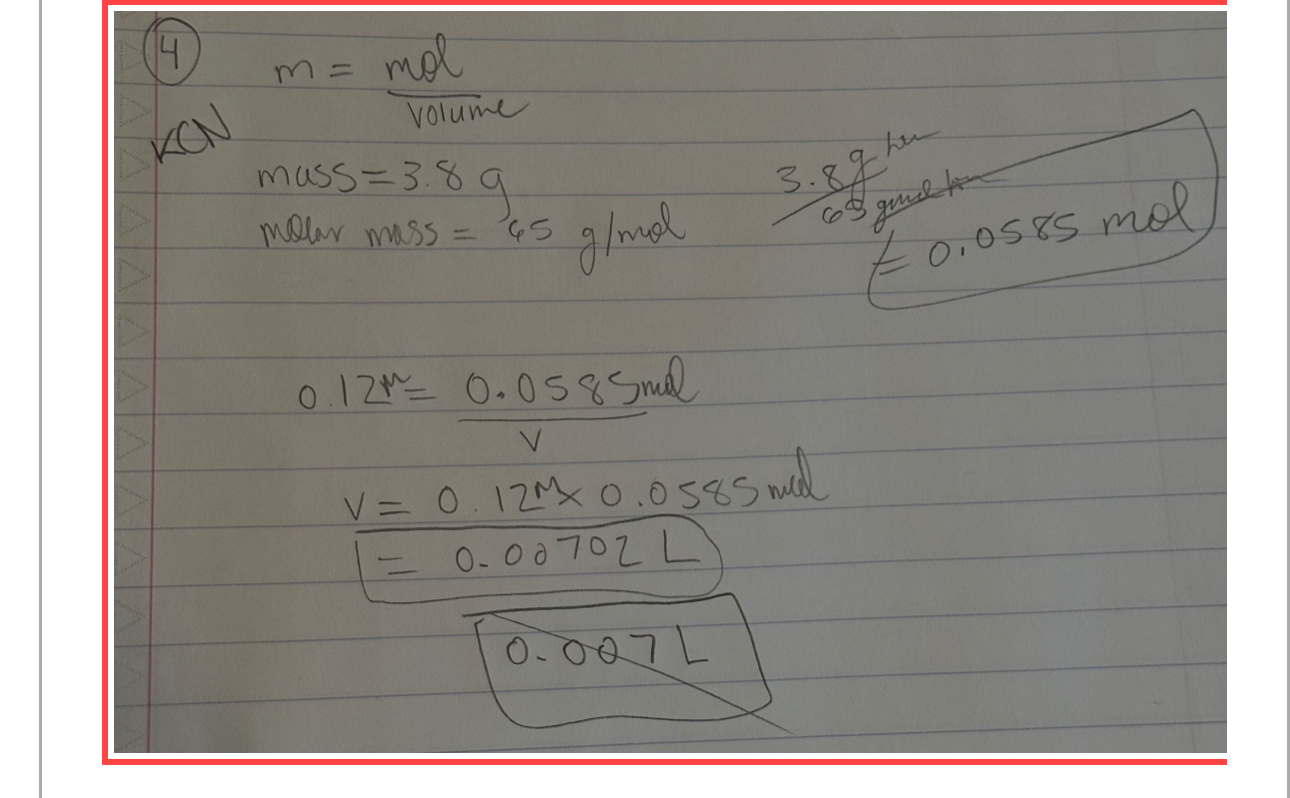 4
m = mol
volume
KCN
mass = 3.8 g
molar mass = 65 g/mol
3.8 g
65 gmol
= 0.0585 mol
0.12 M = 0.0585 mol
V
V = 0.12 M x 0.0585 mol
= 0.00702 L
0.007 L